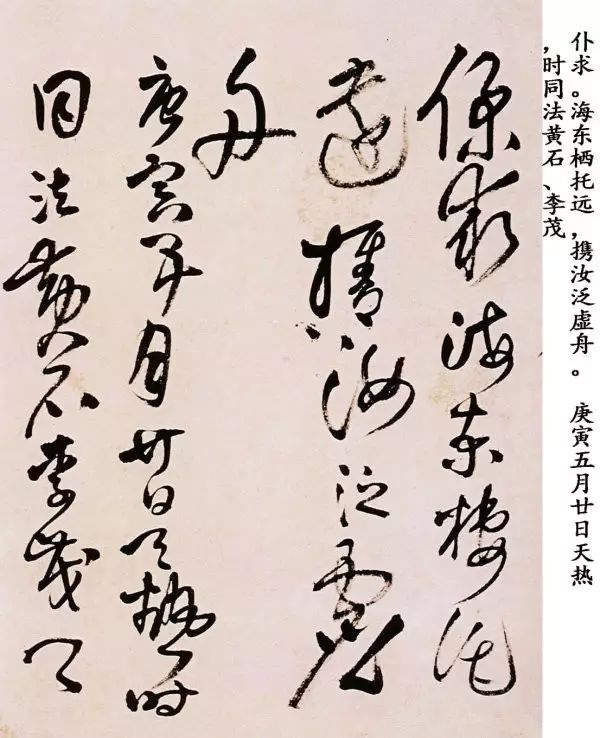 仆求。海东栖托远,携汝泛虚舟。 庚寅五月廿日天热
,时同法黄石、李茂
海東棲托
遠攜汝泛虛
舟
庚寅五月廿日天熱時
同法黃石李茂